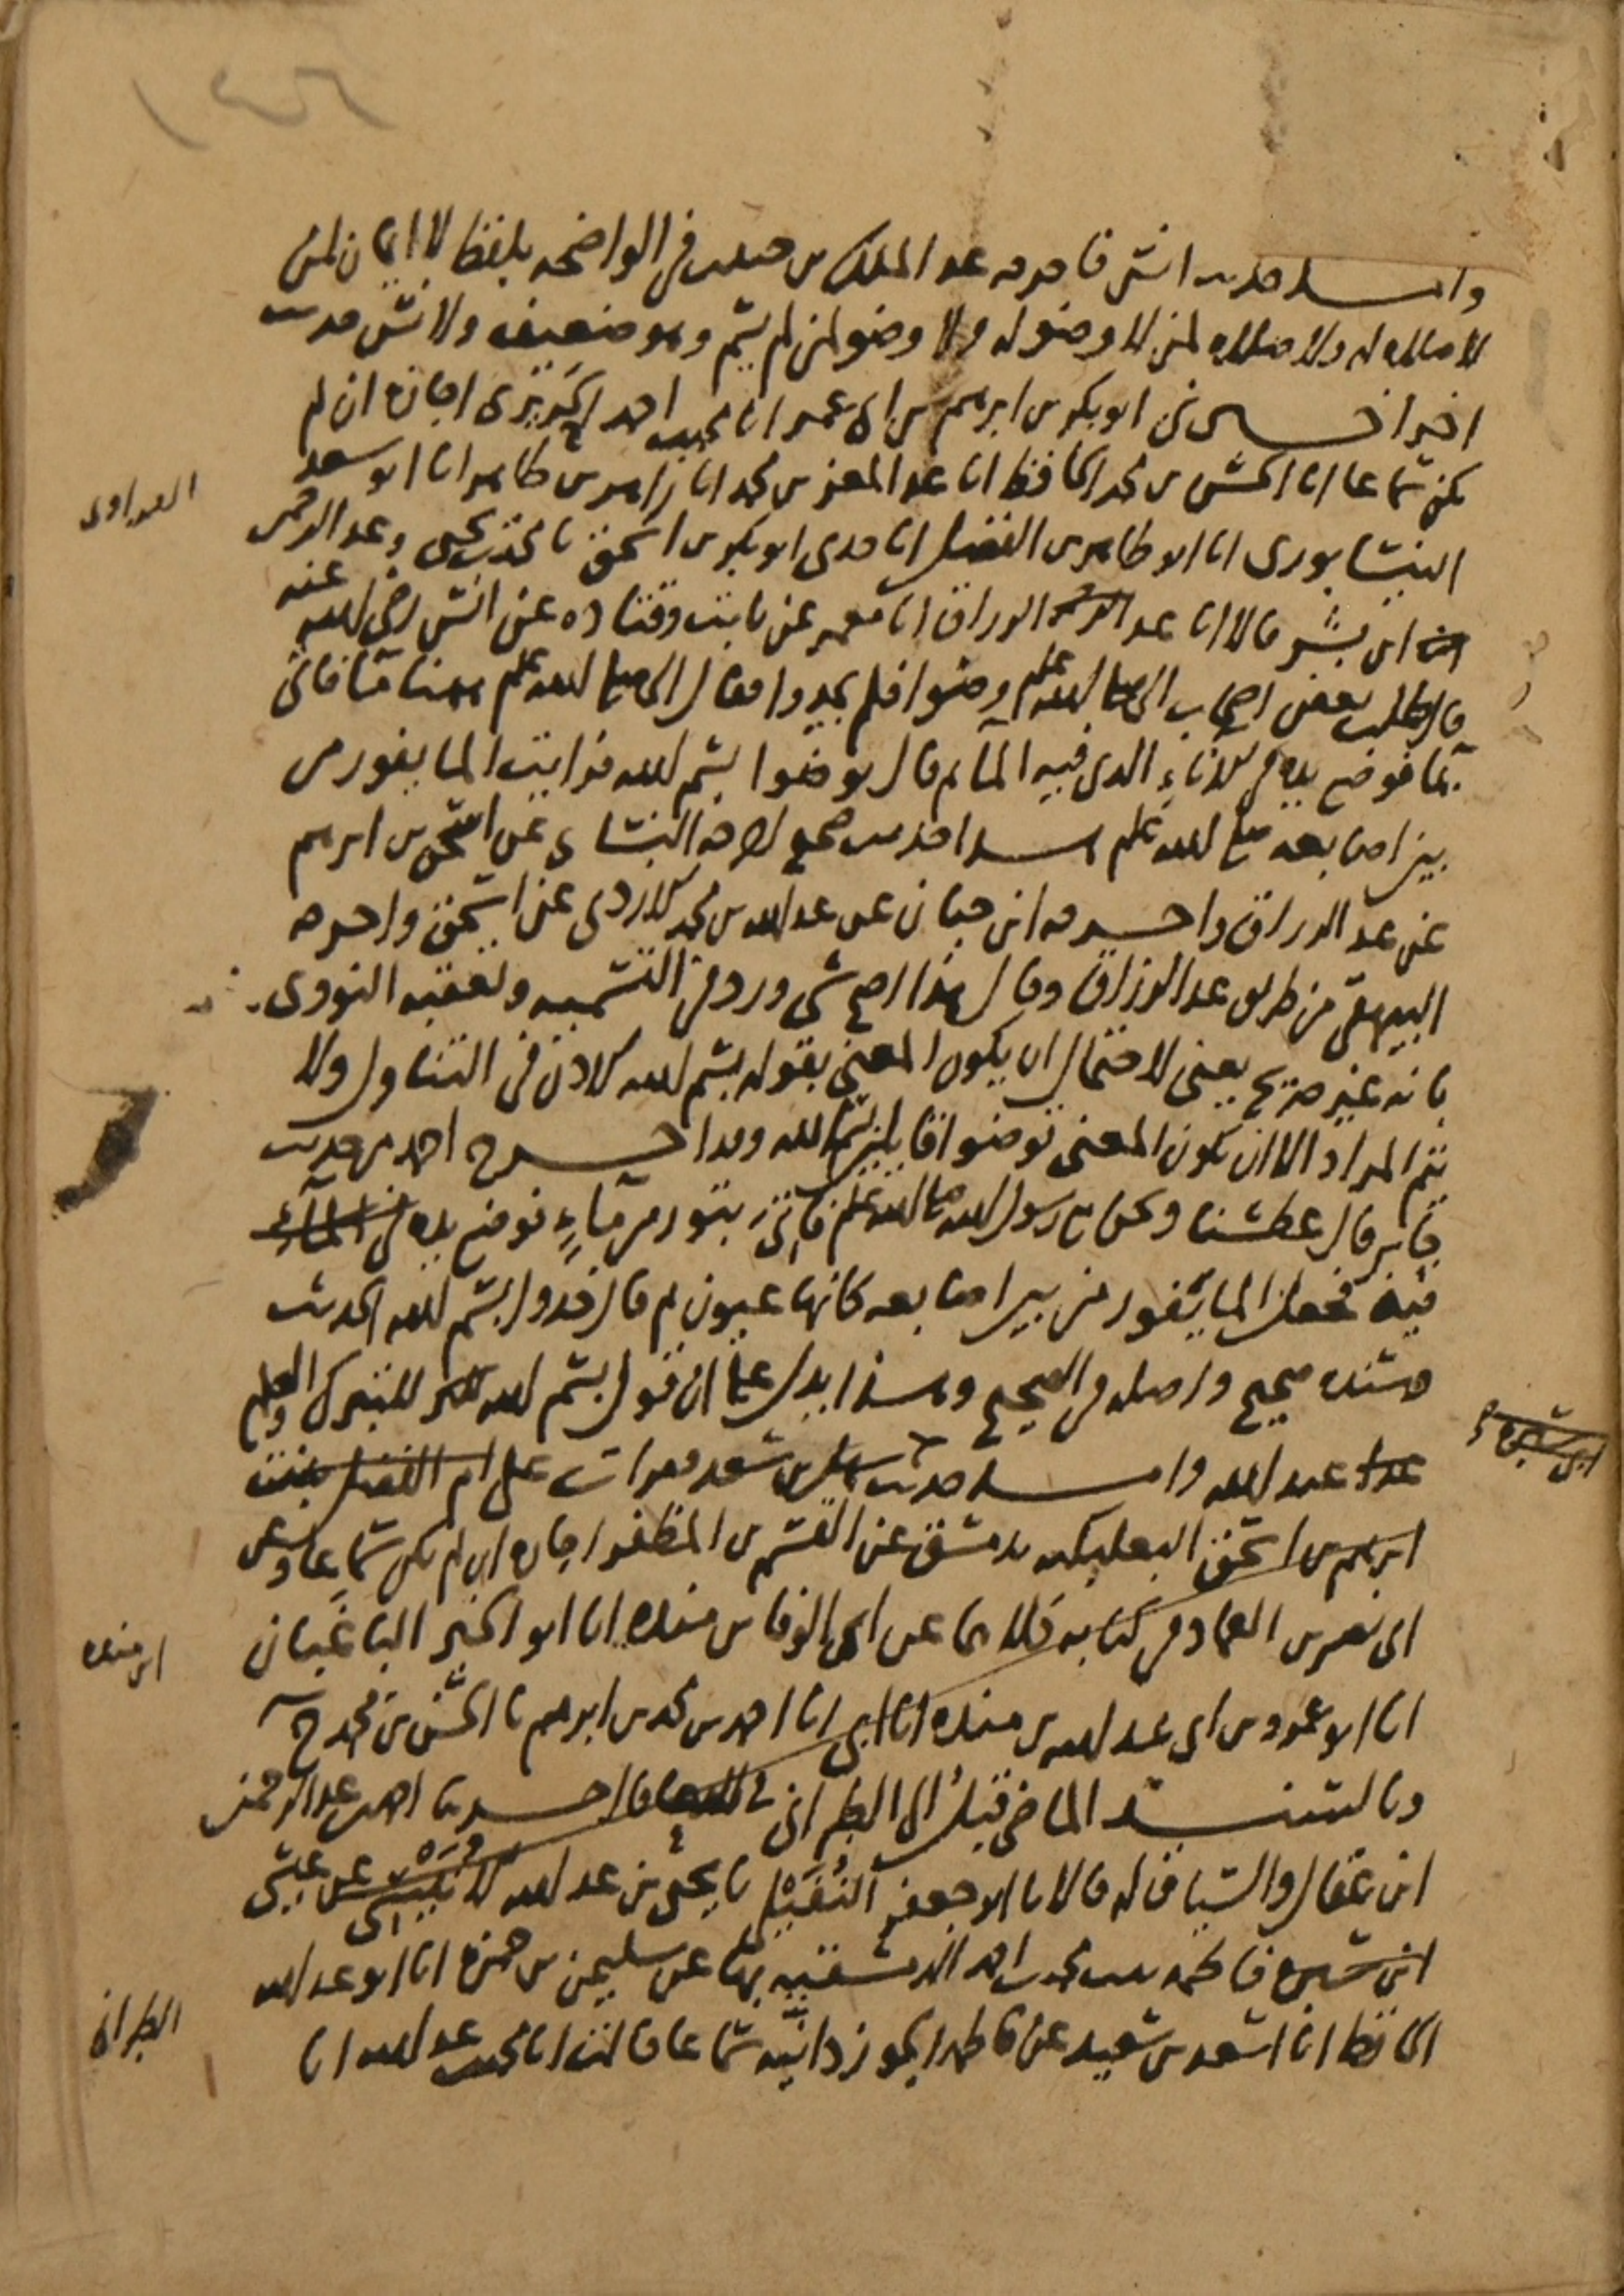 واما حديث انس فاخرجه عبد الملك بن حبيب في الواضحة بلفظ لا ايمان لمن
لا صلاة له ولا صلاة لمن لا وضو له ولا وضو لمن لم يسم وهو ضعيف ولانس حديث
اخر اخبرني ابو بكر بن ابرهيم بن ابي عمر انا محمد بن احمد اجازة ان لم
يكن سماعا انا الحسن بن محمد الحافظ انا عبد المعز بن محمد انا زاهر بن طاهر انا ابو سعد
النيسابوري انا ابو طاهر بن الفضل انا جدي ابو بكر بن اسحق نا محمد بن يحيى وعبد الرحمن
ابن بشر قالا انا عبد الرزاق انا معمر عن ثابت وقتاده عن انس رضي الله عنه
قال طلب بعض اصحاب النبي صلى الله عليه وسلم وضوا فلم يجدوا فقال النبي صلى الله عليه وسلم ههنا ما فاتي
بما فوضع يده في الاناء الذي فيه الماء ثم قال توضوا بسم الله فرايت الما يفور من
بين اصابعه صلى الله عليه وسلم هذا حديث صحيح اخرجه النسائي عن اسحق بن ابرهيم
عن عبد الرزاق واخرجه ابن حبان عن عبد الله بن محمد الازدي عن اسحق واخرجه
البيهقي من طريق عبد الرزاق وقال هذا اصح شي ورد في التسميه وتعقبه النووي
بانه غير صريح يعني لاحتمال ان يكون المعني بقوله بسم الله الاذن في التناول ولا
يتم المراد الا ان يكون المعنى توضوا قايلين بسم الله وقد اخرج احمد من حديث
جابر قال عطشنا ونحن مع رسول الله صلى الله عليه وسلم فاتي بتور من ماء فوضع يده في الماء
فيه فجعل الما يفور من بين اصابعه كانها عيون ثم قال خذوا بسم الله الحديث
وسنده صحيح واصله في الصحيح وهذا يدل على ان قول بسم الله للتبرك والله اعلم
عبد الله واما حديث سهل بن سعد فقرات على ام الفضل بنت
ابرهيم بن اسحق البعلبكيه بدمشق عن القسم بن المظفر اجازه ان لم يكن سماعا وعن
ابي نصر بن العماد في كتابه كلاهما عن ابي الوفا بن منده انا ابو الخير الباغبان
انا ابو عمرو بن ابي عبد الله بن منده انا ابي انا احمد بن محمد بن ابرهيم نا الحسن بن محمد ح
وبالسند الماضي قبل الى الطبراني نا احمد بن عبد الرحمن
ابن عقال والسياق له قالا نا ابو جعفر النفيلي نا يحيى بن عبد الله عن عيسى
ابن سبرة فاطمه بنت محمد بن احمد الدمشقيه بها عن سليمن بن حمزه انا ابو عبد الله
الحافظ انا اسعد بن سعيد عن فاطمه الجوزدانيه سماعا قالت انا محمد بن عبد الله انا
ابن سبره
ابن منده
الطبراني